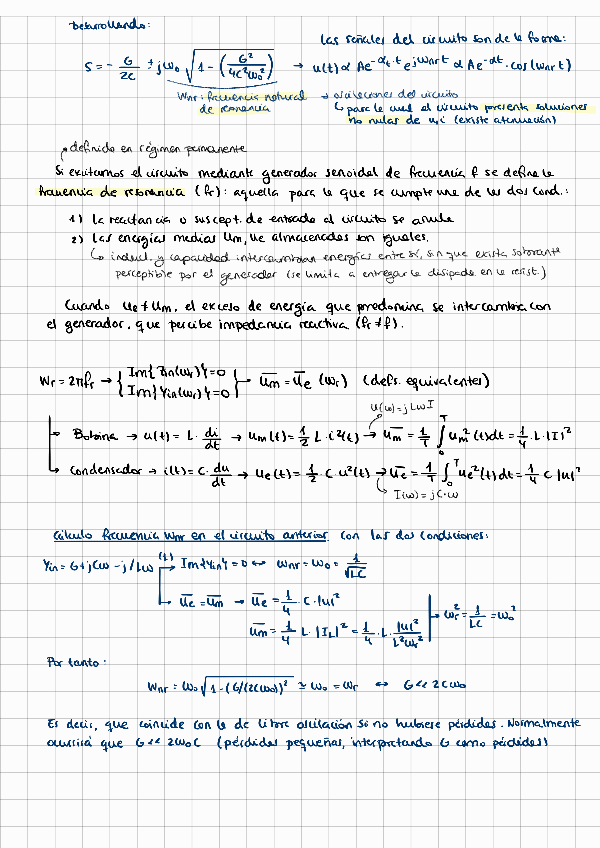 Desarrollando:
Las señales del circuito son de la forma:
S = - G/2C ± jω₀ √(1 - (G²/4C²ω₀²)) → u(t) α Ae^(-αt·t) e^(jωnr t) α Ae^(-αt)·cos(ωnr t)
Wnr: frecuencia natural de resonancia
→ oscilaciones del circuito
↳ para la cual el circuito presenta soluciones no nulas de u, i (existe atenuación)
definida en régimen permanente
Si excitamos el circuito mediante generador senoidal de frecuencia f se define la
frecuencia de resonancia (fr): aquella para la que se cumple una de las dos cond.:
1) la reactancia o suscept. de entrada al circuito se anula
2) las energías medias Um, Ue almacenadas son iguales.
↳ induct. y capacidad intercambian energías entre sí, sin que exista sobrante
perceptible por el generador (se limita a entregar la disipada en la resist.)
Cuando Ue ≠ Um, el exceso de energía que predomina se intercambia con
el generador, que percibe impedancia reactiva (fr ≠ f).
Wr = 2πfr → { Im{Zin(wr)} = 0
Im{Yin(wr)} = 0 } → Um = Ue (wr) (defs. equivalentes)
U(ω) = jLωI
→ Bobina → u(t) = L · di/dt → um(t) = 1/2 L · i²(t) → Um = 1/T ∫₀ᵀ um²(t)dt = 1/4 · L · |I|²
↳ Condensador → i(t) = C · du/dt → ue(t) = 1/2 · C · u²(t) → Ue = 1/T ∫₀ᵀ ue²(t)dt = 1/4 C |u|²
I(ω) = jC·ω
Cálculo frecuencia Wnr en el circuito anterior con las dos condiciones:
Yin = G + jCω - j/Lω (1) → Im{Yin} = 0 ↔ ωnr = ω₀ = 1/√LC
↳ Ue = Um → Ue = 1/4 · C · |u|²
Um = 1/4 L · |IL|² = 1/4 · L · |u|²/L²wr²
→ ωr² = 1/LC = ω₀²
Por tanto:
Wnr = ω₀ √(1 - (G/(2Cω₀))²) ≃ ω₀ = ωr ↔ G << 2Cω₀
Es decir, que coincide con la de libre oscilación si no hubiese pérdidas. Normalmente
ocurrirá que G << 2ω₀C (pérdidas pequeñas, interpretando G como pérdidas)